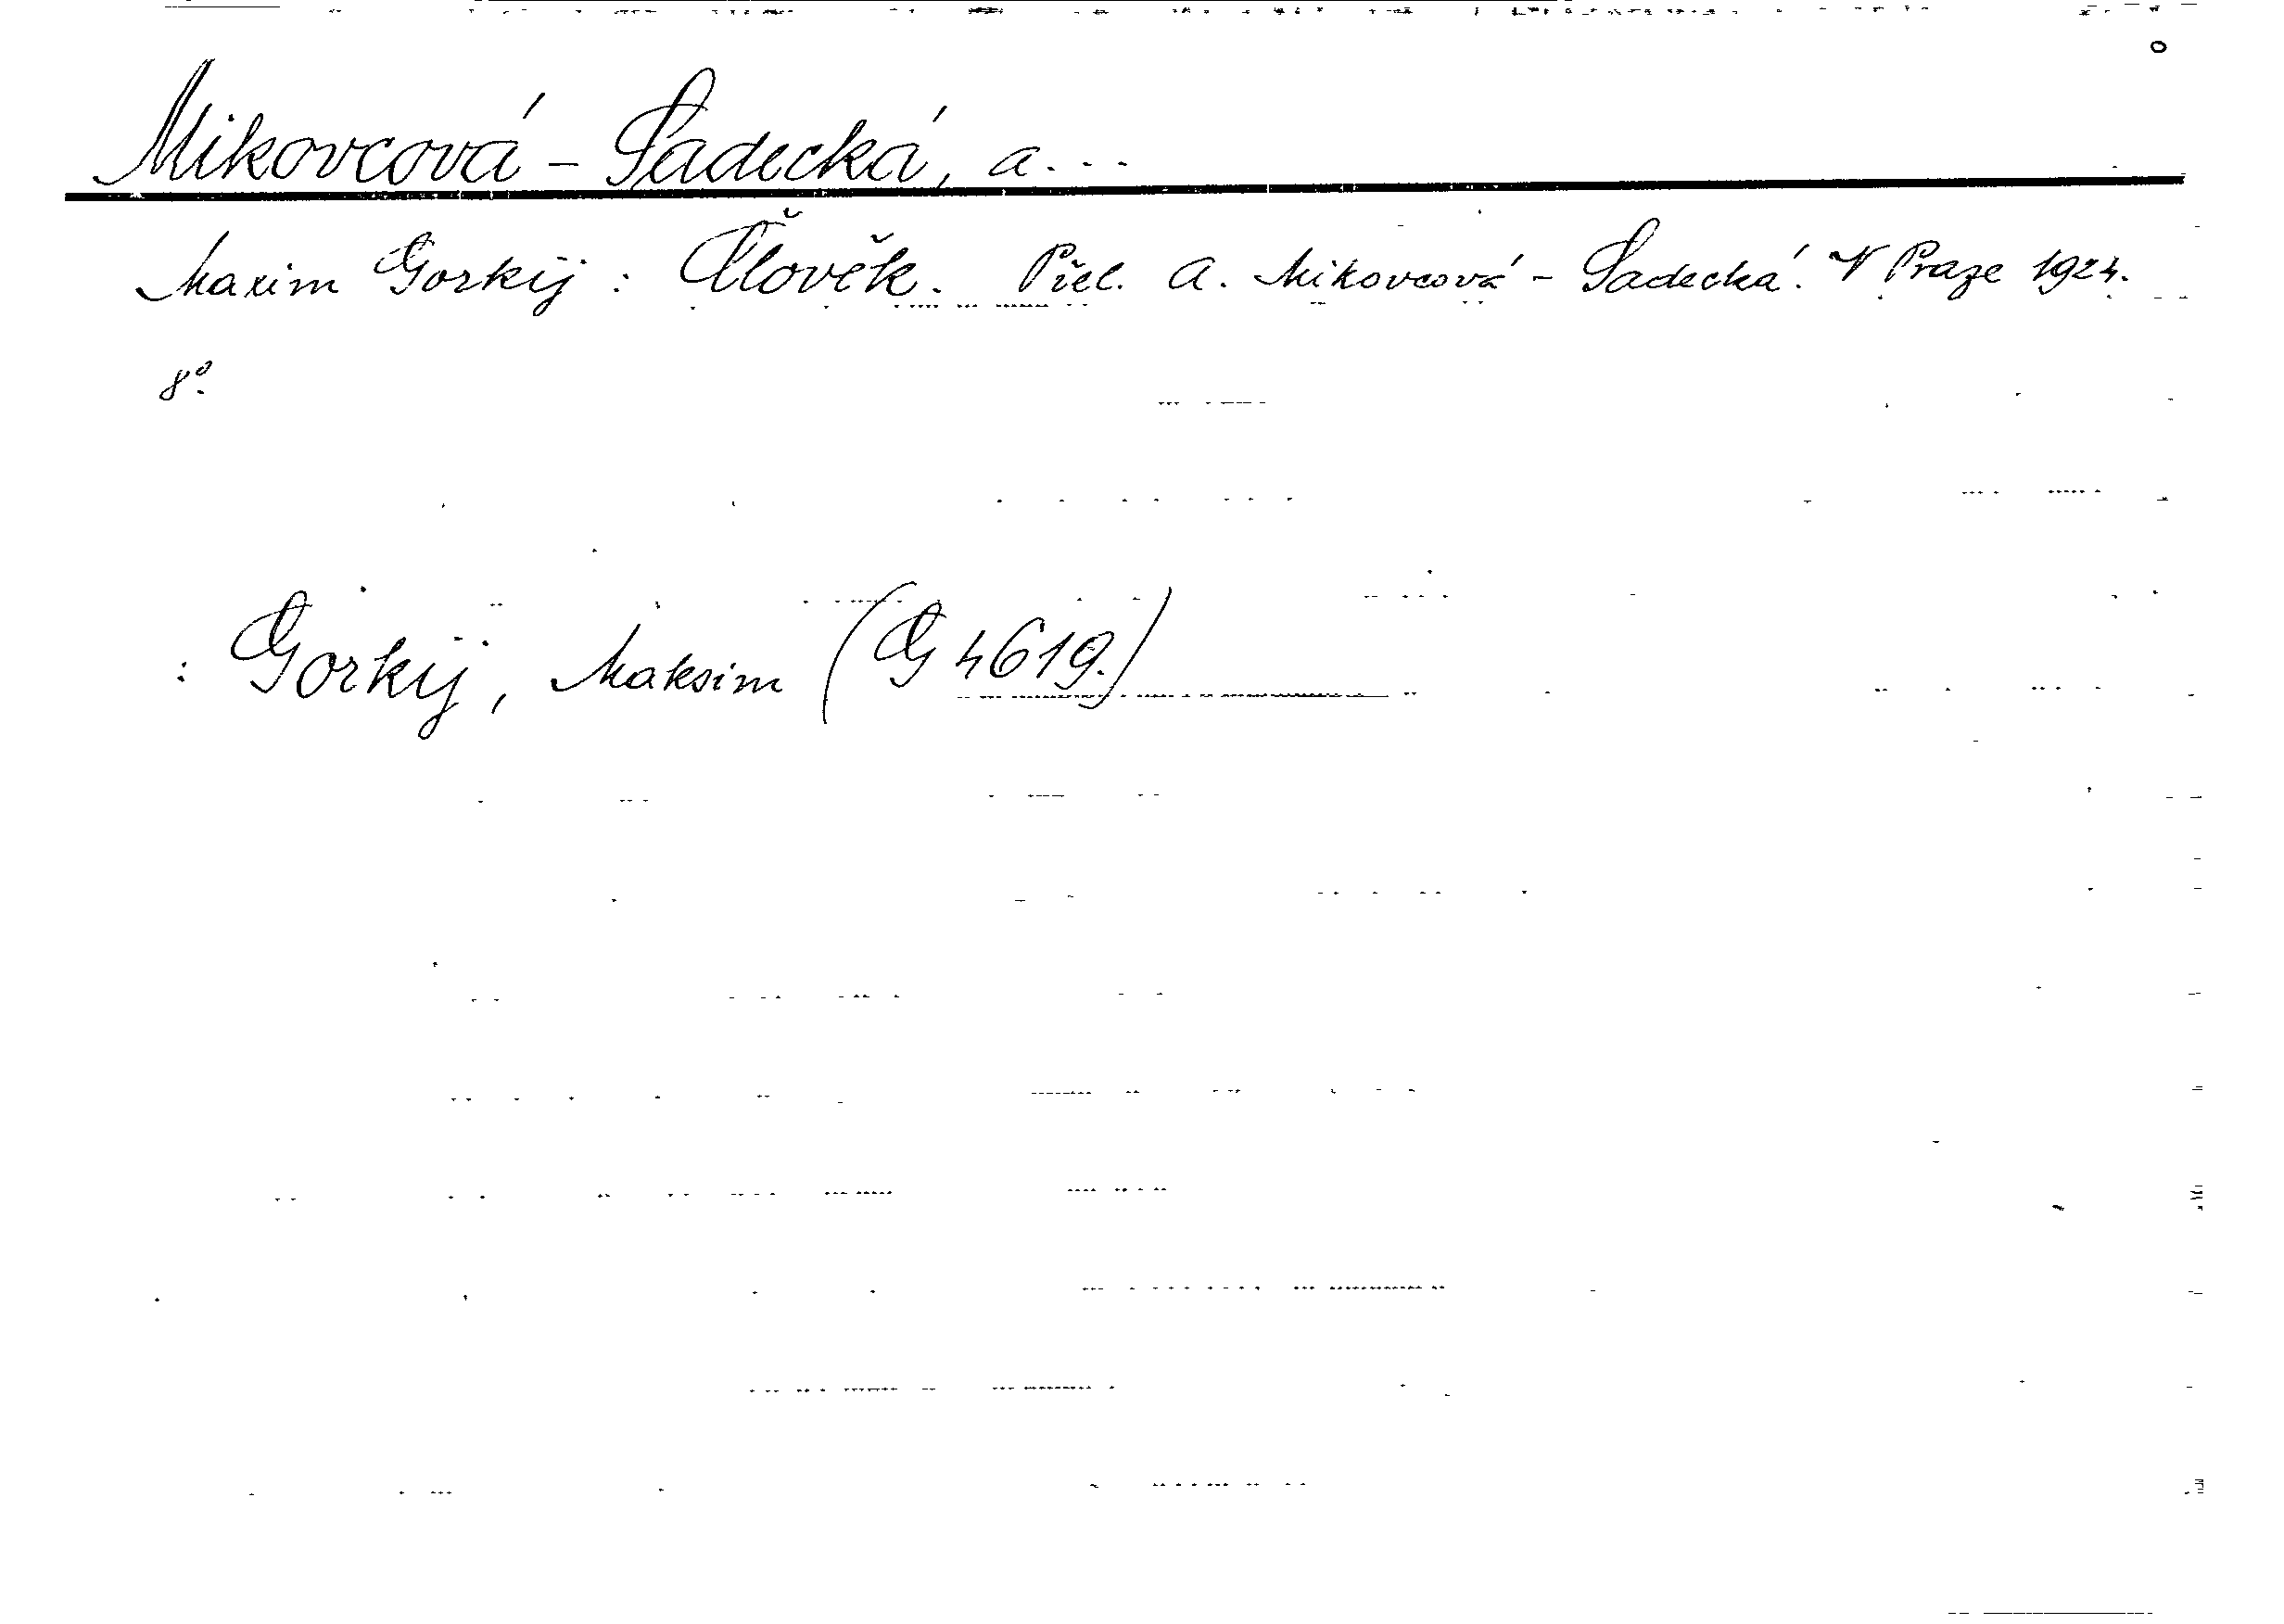 Mikovcová - Sadecká, A...
Maxim Gorkij : Člověk. Přel. A. Mikovcová - Sadecká. V Praze 1924.
8°.
: Gorkij, Maksim (G 4619.)